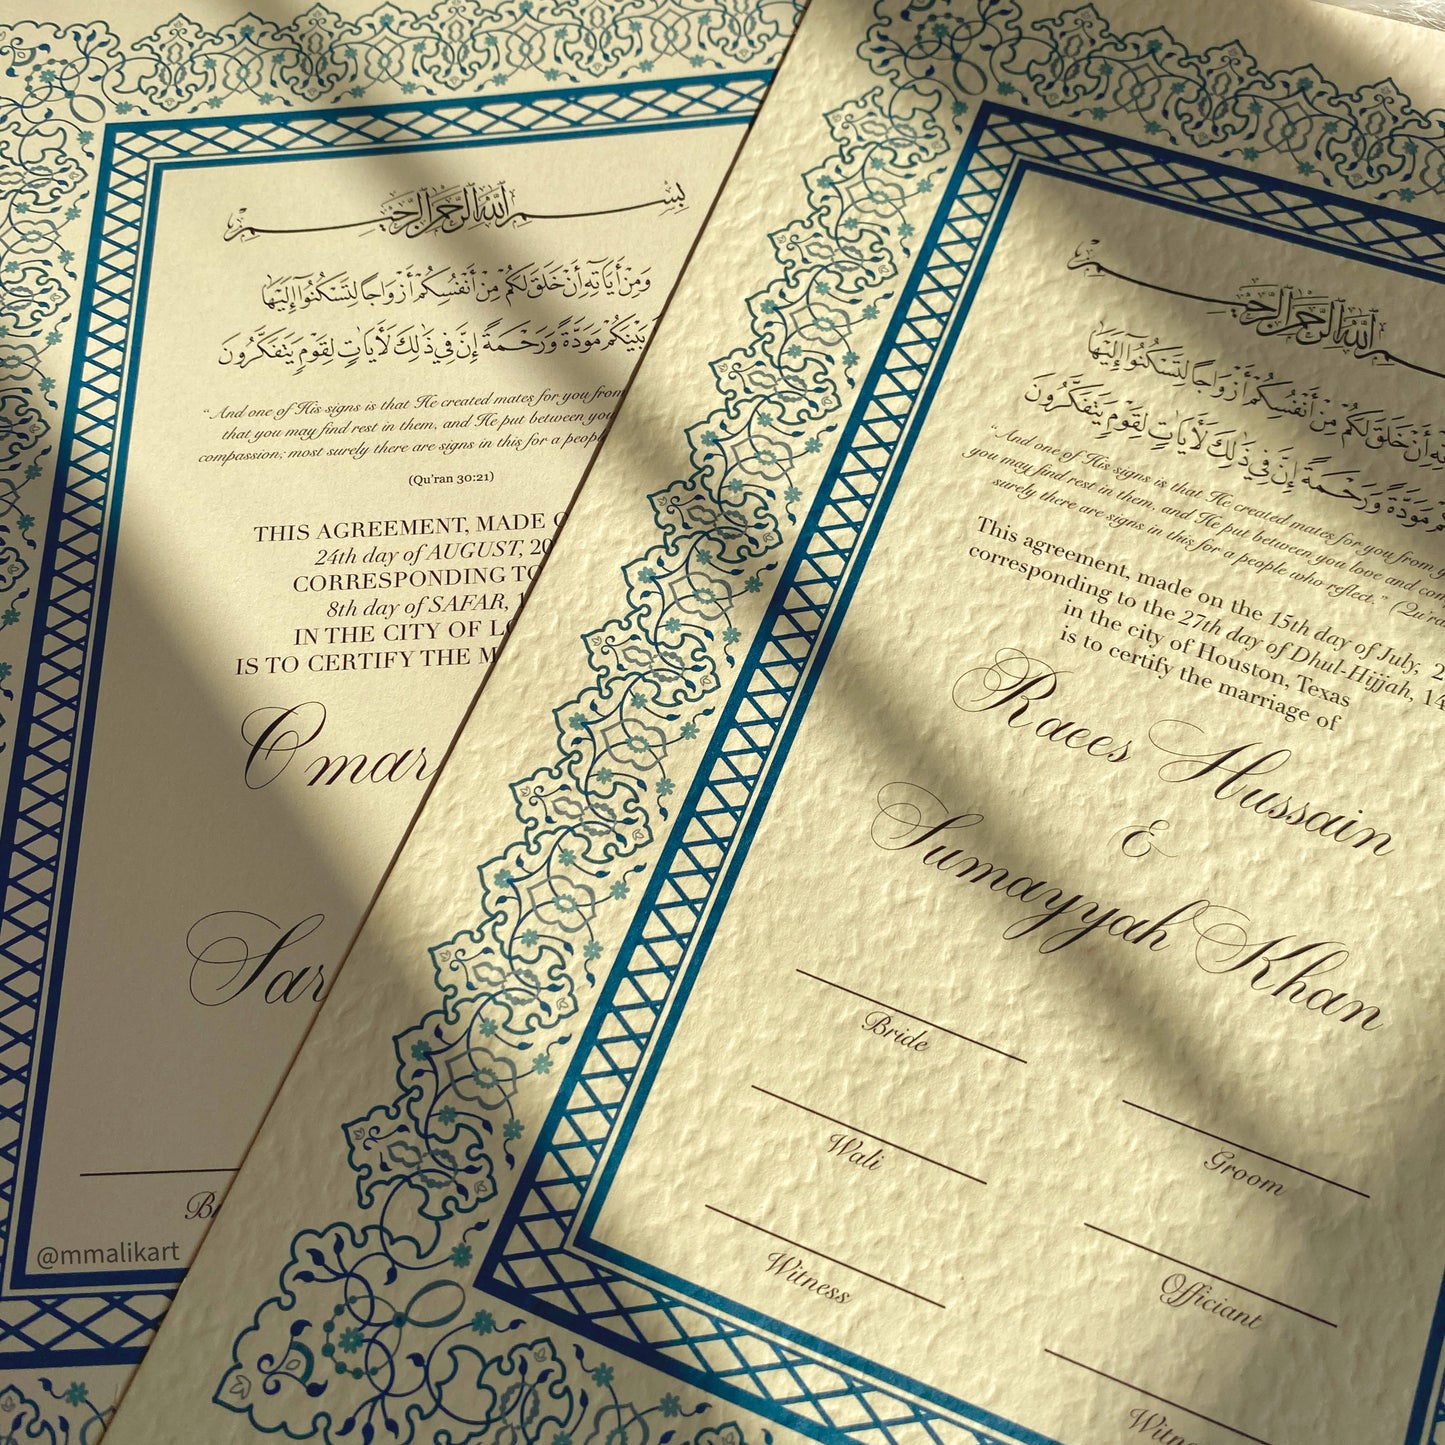 بِسْمِ اللَّهِ الرَّحْمَٰنِ الرَّحِيمِ
وَمِنْ آيَاتِهِ أَنْ خَلَقَ لَكُمْ مِنْ أَنْفُسِكُمْ أَزْوَاجًا لِتَسْكُنُوا إِلَيْهَا
بَيْنَكُمْ مَوَدَّةً وَرَحْمَةً إِنَّ فِي ذَٰلِكَ لَآيَاتٍ لِقَوْمٍ يَتَفَكَّرُونَ
“And one of His signs is that He created mates for you from
that you may find rest in them, and He put between you
compassion; most surely there are signs in this for a people
(Qu'ran 30:21)
THIS AGREEMENT, MADE
24th day of AUGUST, 20
CORRESPONDING TO
8th day of SAFAR, 1
IN THE CITY OF LO
IS TO CERTIFY THE M
Omar
Sar
@mmalikart
بِسْمِ اللَّهِ الرَّحْمَٰنِ الرَّحِيمِ
أَنْ خَلَقَ لَكُمْ مِنْ أَنْفُسِكُمْ أَزْوَاجًا لِتَسْكُنُوا إِلَيْهَا
مَوَدَّةً وَرَحْمَةً إِنَّ فِي ذَٰلِكَ لَآيَاتٍ لِقَوْمٍ يَتَفَكَّرُونَ
“And one of His signs is that He created mates for you from
you may find rest in them, and He put between you love and
surely there are signs in this for a people who reflect.” (Qu'ra
This agreement, made on the 15th day of July, 2
corresponding to the 27th day of Dhul-Hijjah, 14
in the city of Houston, Texas
is to certify the marriage of
Raees Hussain
&
Sumayyah Khan
Bride
Groom
Wali
Officiant
Witness
Witn